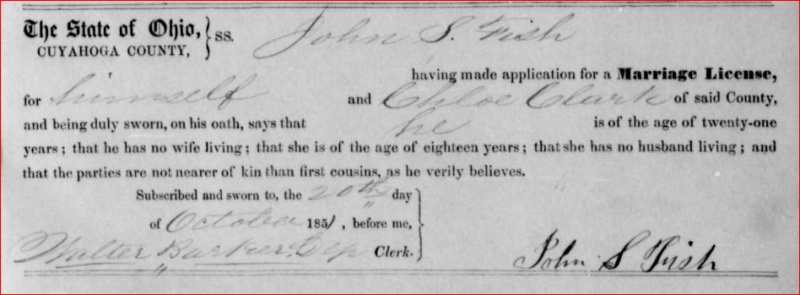 The State of Ohio, } ss. John S. Fish
CUYAHOGA COUNTY,
having made application for a Marriage License,
for himself and Chloe Clark of said County,
and being duly sworn, on his oath, says that he is of the age of twenty-one
years; that he has no wife living; that she is of the age of eighteen years; that she has no husband living; and
that the parties are not nearer of kin than first cousins, as he verily believes.
Subscribed and sworn to, the 20th day
of October 1851, before me,
Walter Barker Dep Clerk.
John S Fish